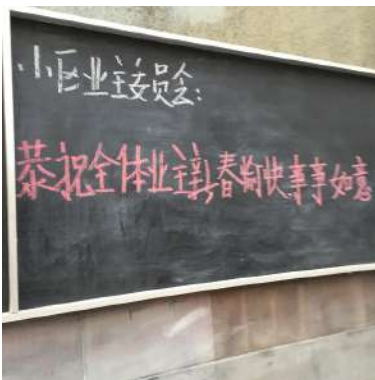 小区业主委员会:
恭祝全体业主新春愉快事事如意